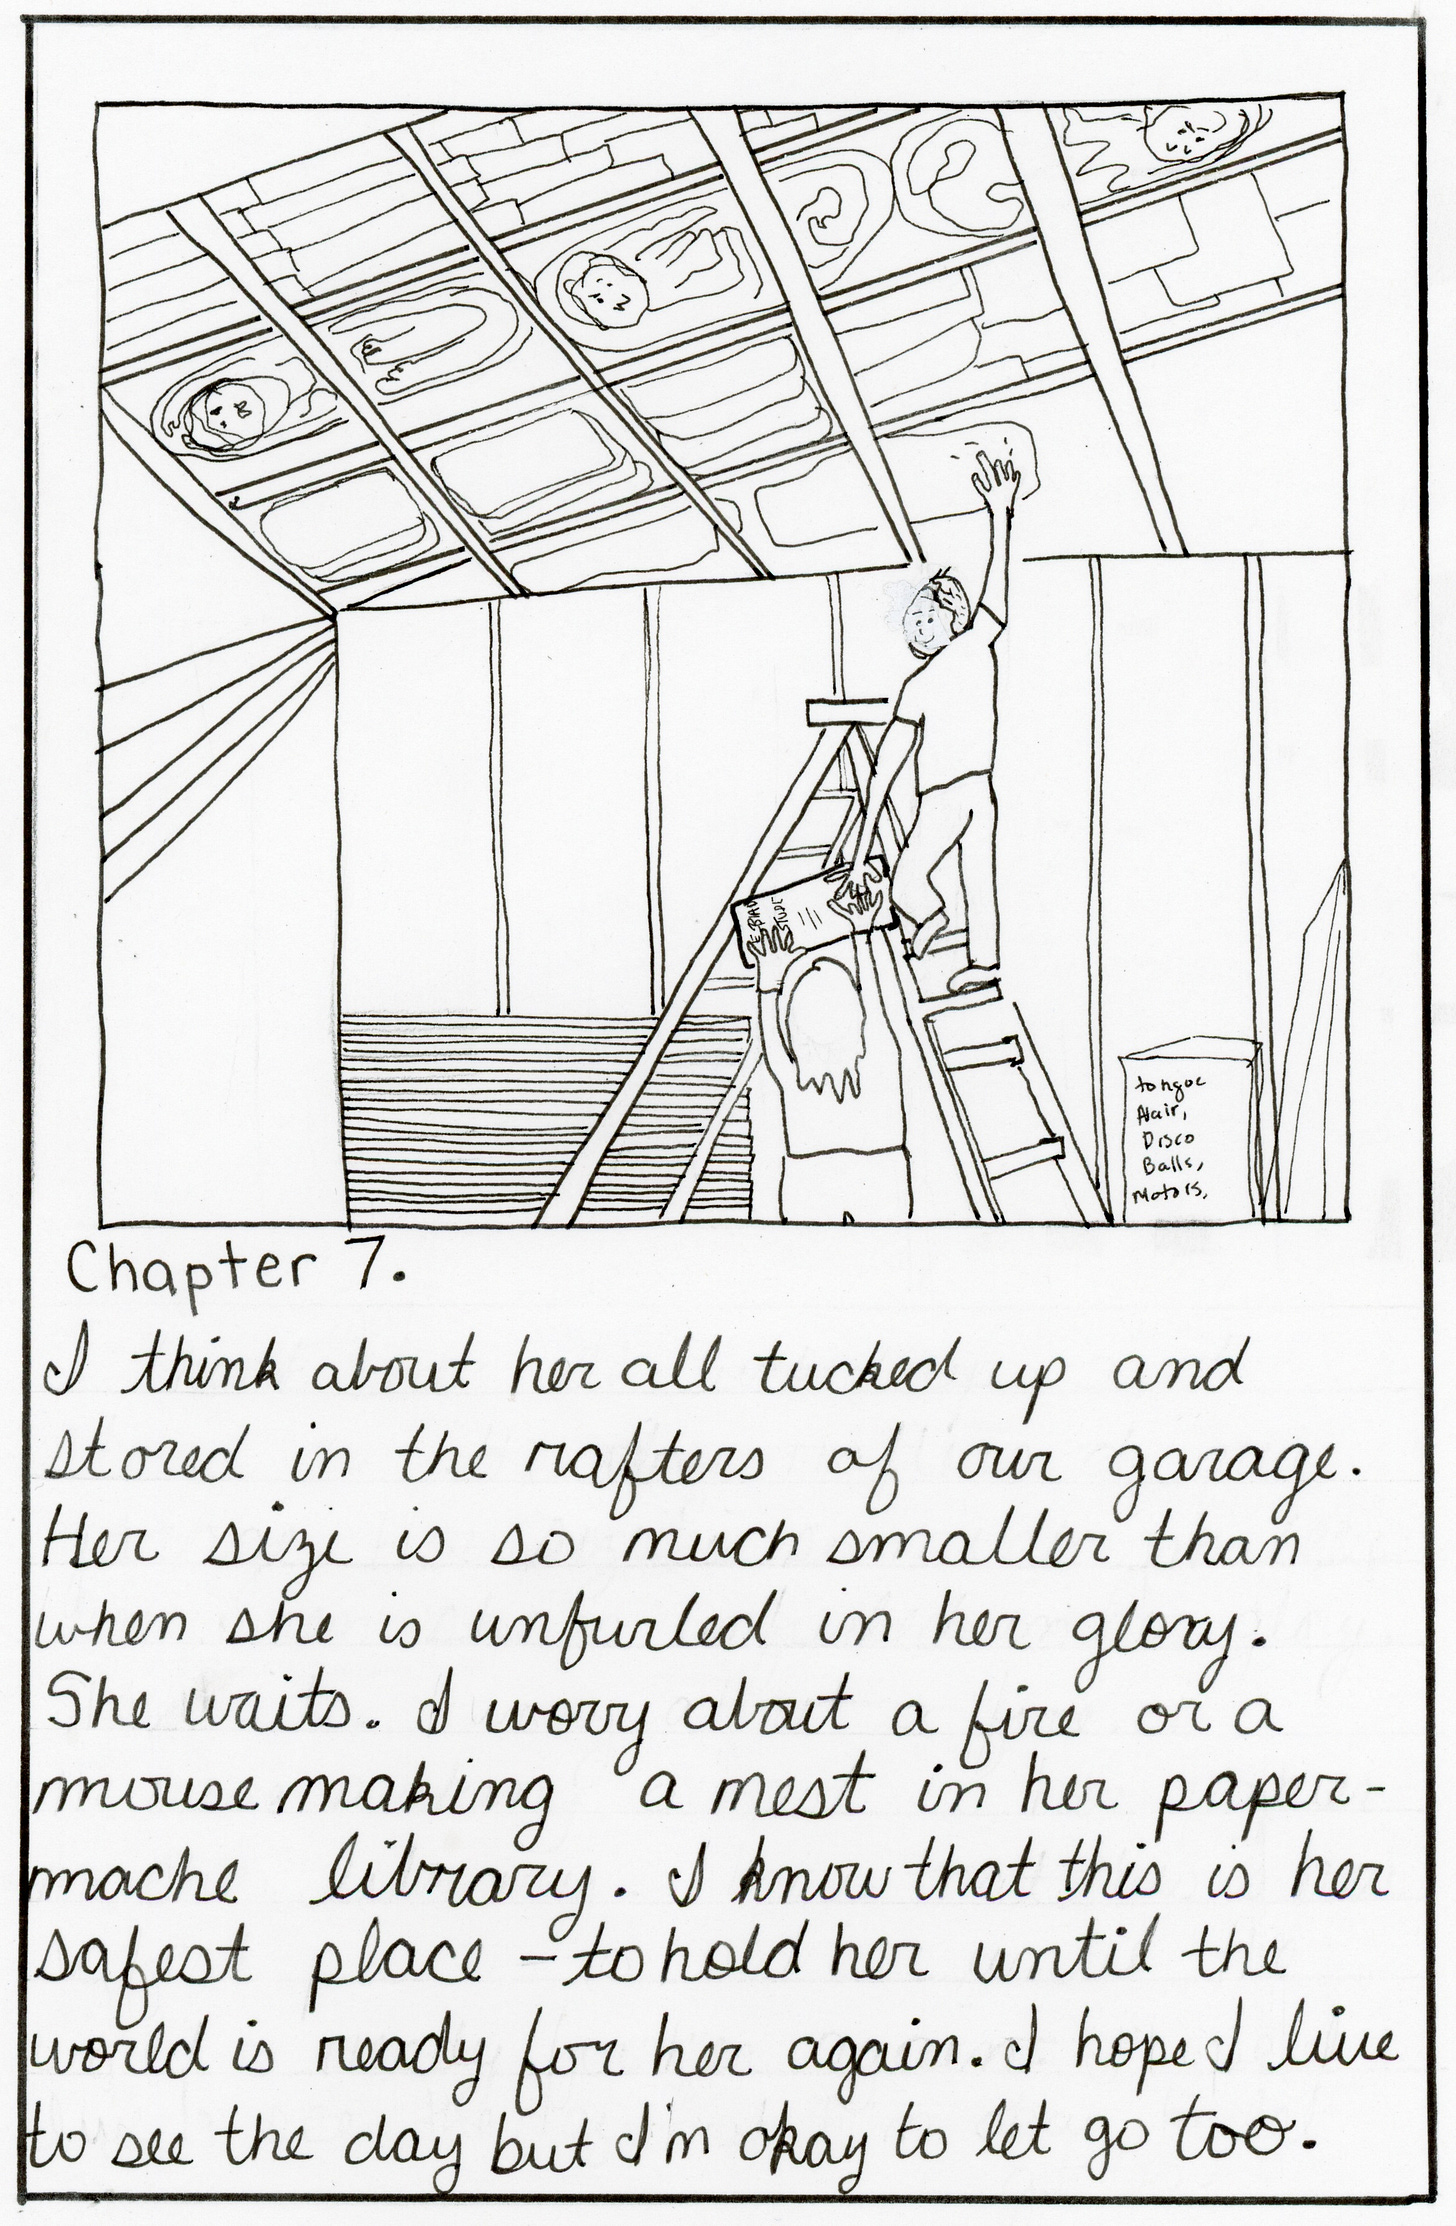 STUDI
tongue
Hair,
Disco
Balls,
Motors,
Chapter 7.
I think about her all tucked up and
stored in the rafters of our garage.
Her size is so much smaller than
when she is unfurled in her glory.
She waits. I worry about a fire or a
mouse making a nest in her paper-
mache library. I know that this is her
safest place - to hold her until the
world is ready for her again. I hope I live
to see the day but I'm okay to let go too.